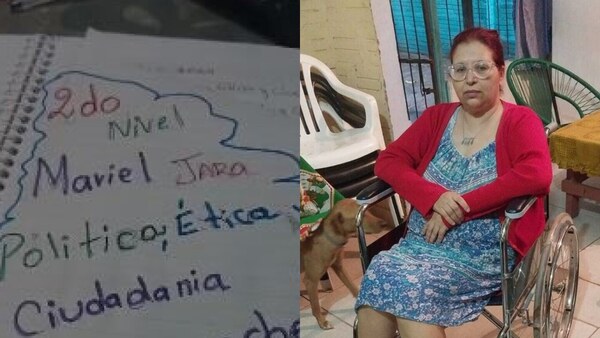 2do
Nivel
Mariel Jara
Política, Ética
Ciudadania